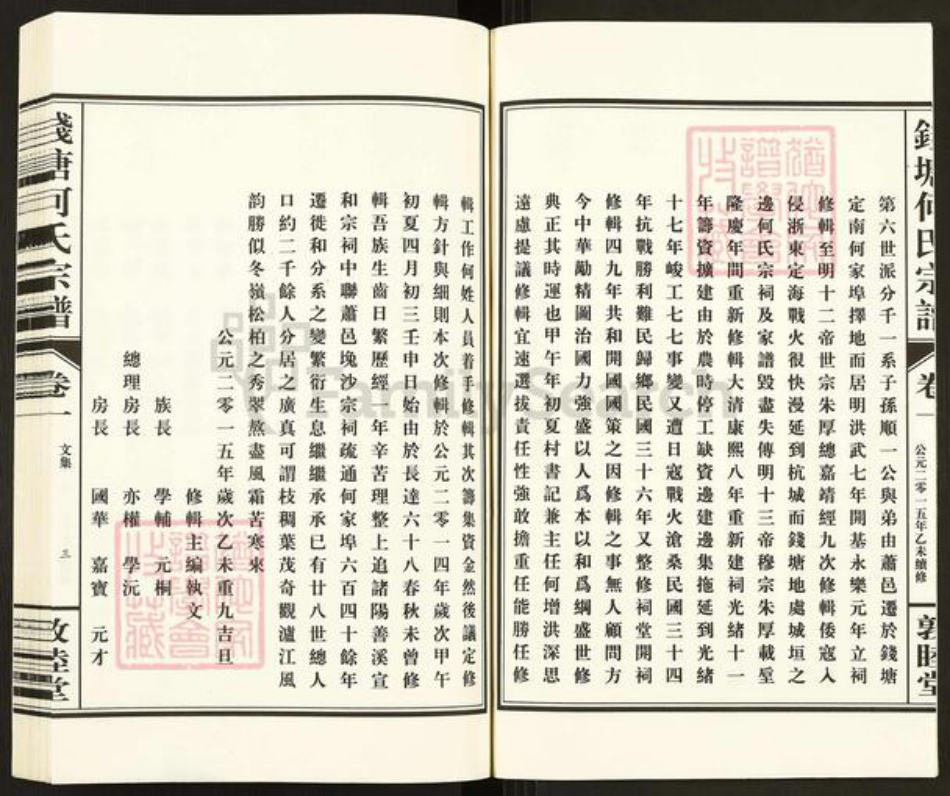 錢塘何氏宗譜 卷一 公元二零一五年乙未續修 敦睦堂
第六世派分千一系子孫順一公與弟由蕭邑遷於錢塘
定南何家埠擇地而居明洪武七年開基永樂元年立祠
修輯至明十二帝世宗朱厚總嘉靖經九次修輯倭寇入
侵浙東定海戰火很快漫延到杭城而錢塘地處城垣之
邊何氏宗祠及家譜毀盡失傳明十三帝穆宗朱厚載壓
隆慶年間重新修輯大清康熙八年重新建祠光緒十一
年籌資擴建由於農時停工缺資邊建邊集拖延到光緒
十七年峻工七七事變又遭日寇戰火滄桑民國三十四
年抗戰勝利難民歸鄉民國三十六年又整修祠堂開祠
修輯四九年共和開國國策之因修輯之事無人顧問方
今中華勵精圖治國力強盛以人為本以和為綱盛世修
典正其時運也甲午年初夏村書記兼主任何增洪深思
遠慮提議修輯宜速選拔責任性強敢擔重任能勝任修
輯工作何姓人員着手修輯其次籌集資金然後議定修
輯方針與細則本次修輯於公元二零一四年歲次甲午
初夏四月初三壬申日始由於長達六十八春秋未曾修
輯吾族生齒日繁歷經一年辛苦理整上追諸陽善溪宣
和宗祠中聯蕭邑堍沙宗祠疏通何家埠六百四十餘年
遷徙和分系之變繁衍生息繼繼承承已有廿八世總人
口約二千餘人分居之廣真可謂枝稠葉茂奇觀瀘江風
韵勝似冬嶺松柏之秀翠熬盡風霜苦寒來
公元二零一五年歲次乙未重九吉旦
修輯主編執文
族長 學輔 元桐
總理房長 亦權 學沅
房長 國華 嘉寶 元才
錢塘何氏宗譜 卷一 文集 三 敦睦堂
FamilySearch